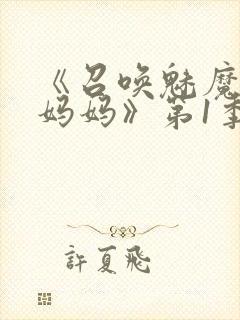 《召唤魅魔
妈妈》第1季
許夏飛